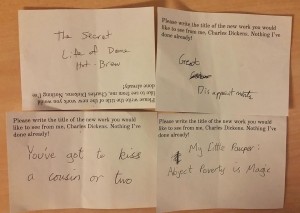 The Secret
Life of
Please write the title of the new work you would
like to see from me, Charles Dickens. Nothing I've
done already!
Please write the title of the new work you would
like to see from me, Charles Dickens. Nothing I've
done already!
Great
Please write the title of the new work you would
like to see from me, Charles Dickens. Nothing I've
done already!
You've got to kiss
a cousin or two
Please write the title of the new work you would
like to see from me, Charles Dickens. Nothing I've
done already!
My Little Pauper:
Abject Poverty is Magic